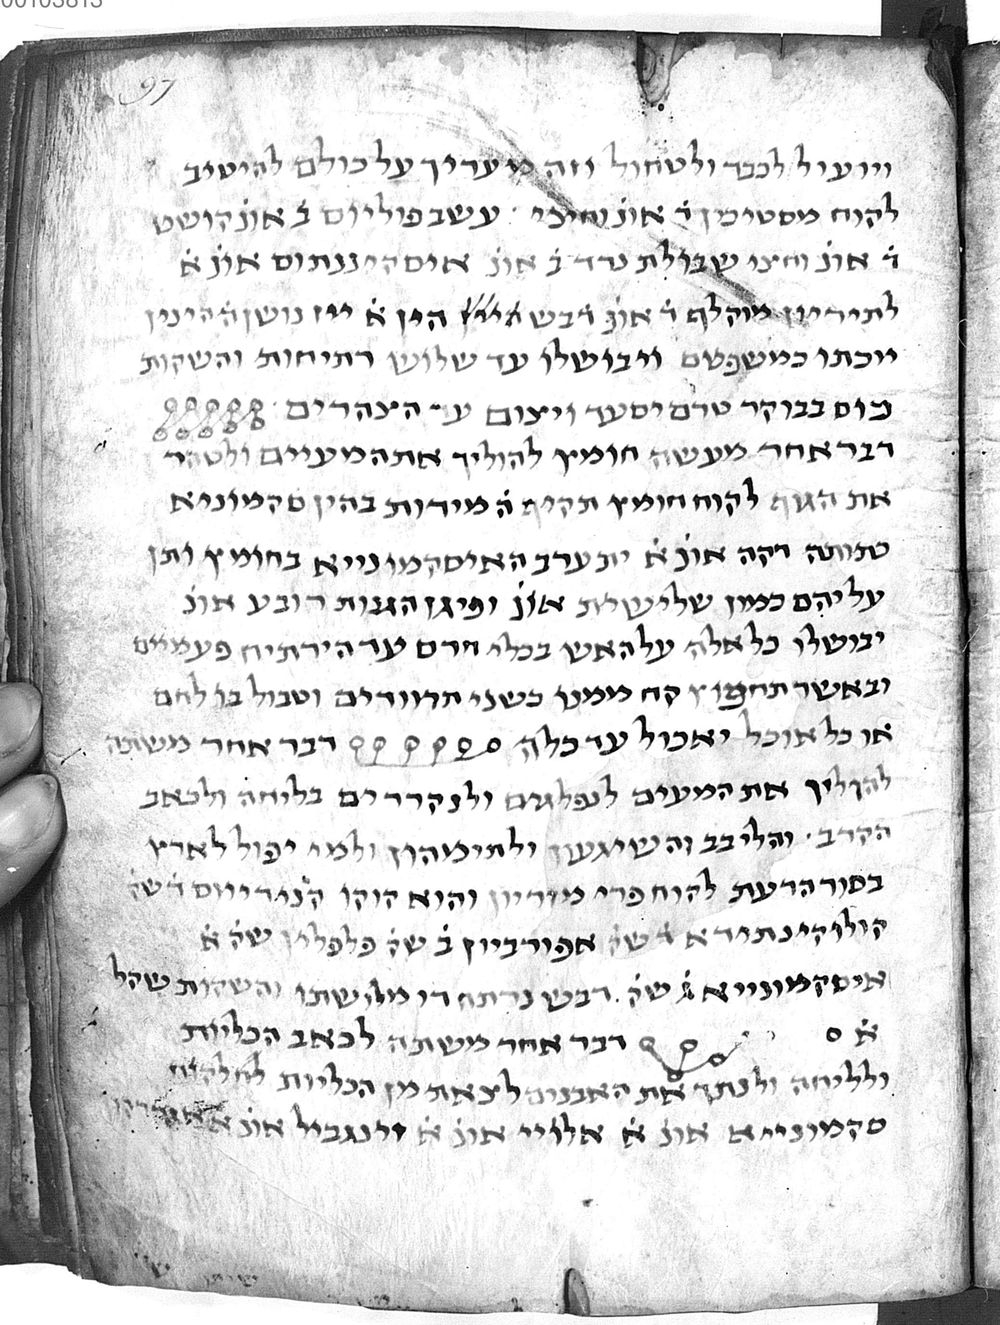 00103813
97
ויועיל לכבד ולטחול וזה מעריך על כולם להיטיב
לקוח מסטיכין ד̇ אונ̇ וחיצי עשב פוליום ב̇ אונ̇ קושט
ד̇ אונ̇ וחצי שבולת נרד ב̇ אונ̇ אונ̇ א̇
מוקלף ד̇ אונ̇ דבש הין א̇ יין נושן ה̇ הינין
יוכתו כמשפטם ויבושלו עד שלוש רתיחות והשקות
כוס בבוקר טרם יסעד ויצום עד הצהרים
דבר אחר מעשה חומץ להוליך את המעיים ולטהר
את הגוף לקוח חומץ תקיף ה̇ מידות בהין סקמוניא
כתותה דקה אונ̇ א̇ יונערב האיסקמונייא בחומץ ותן
עליהם כמון שלישית אונ̇ ופיגן הגנות רובע אונ̇
יבושלו כל אלה על האש בכלי חרס עד הירתיח פעמיים
ובאשר תחפוץ קח ממנו כשני תרוודים וטבול בו לחם
או כל אוכל יאכול עד כלה דבר אחר משתה
להוליך את המעים לנפלגים ולנקרדים בליחה ולכאב
הקרב והליבב והשיגעון ולתימהון ולמי יפול לארץ
בסור הדעת לקוח פרי מזריון והוא קוקו ד̇ שק̇
קולוקינתידא ד̇ שק̇ אפורביון ב̇ שק̇ פלפלין שק̇ א̇
איסקמונייא ג̇ שק̇ דבש נרתח די מלושתו והשקות שקל
א̇
דבר אחר משתה לכאב הכליות
ולליחה ולנתך את האבנים לצאת מן הכליות
סקמונייא אונ̇ א̇ אלויי אונ̇ א̇ זינגביל אונ̇ א̇